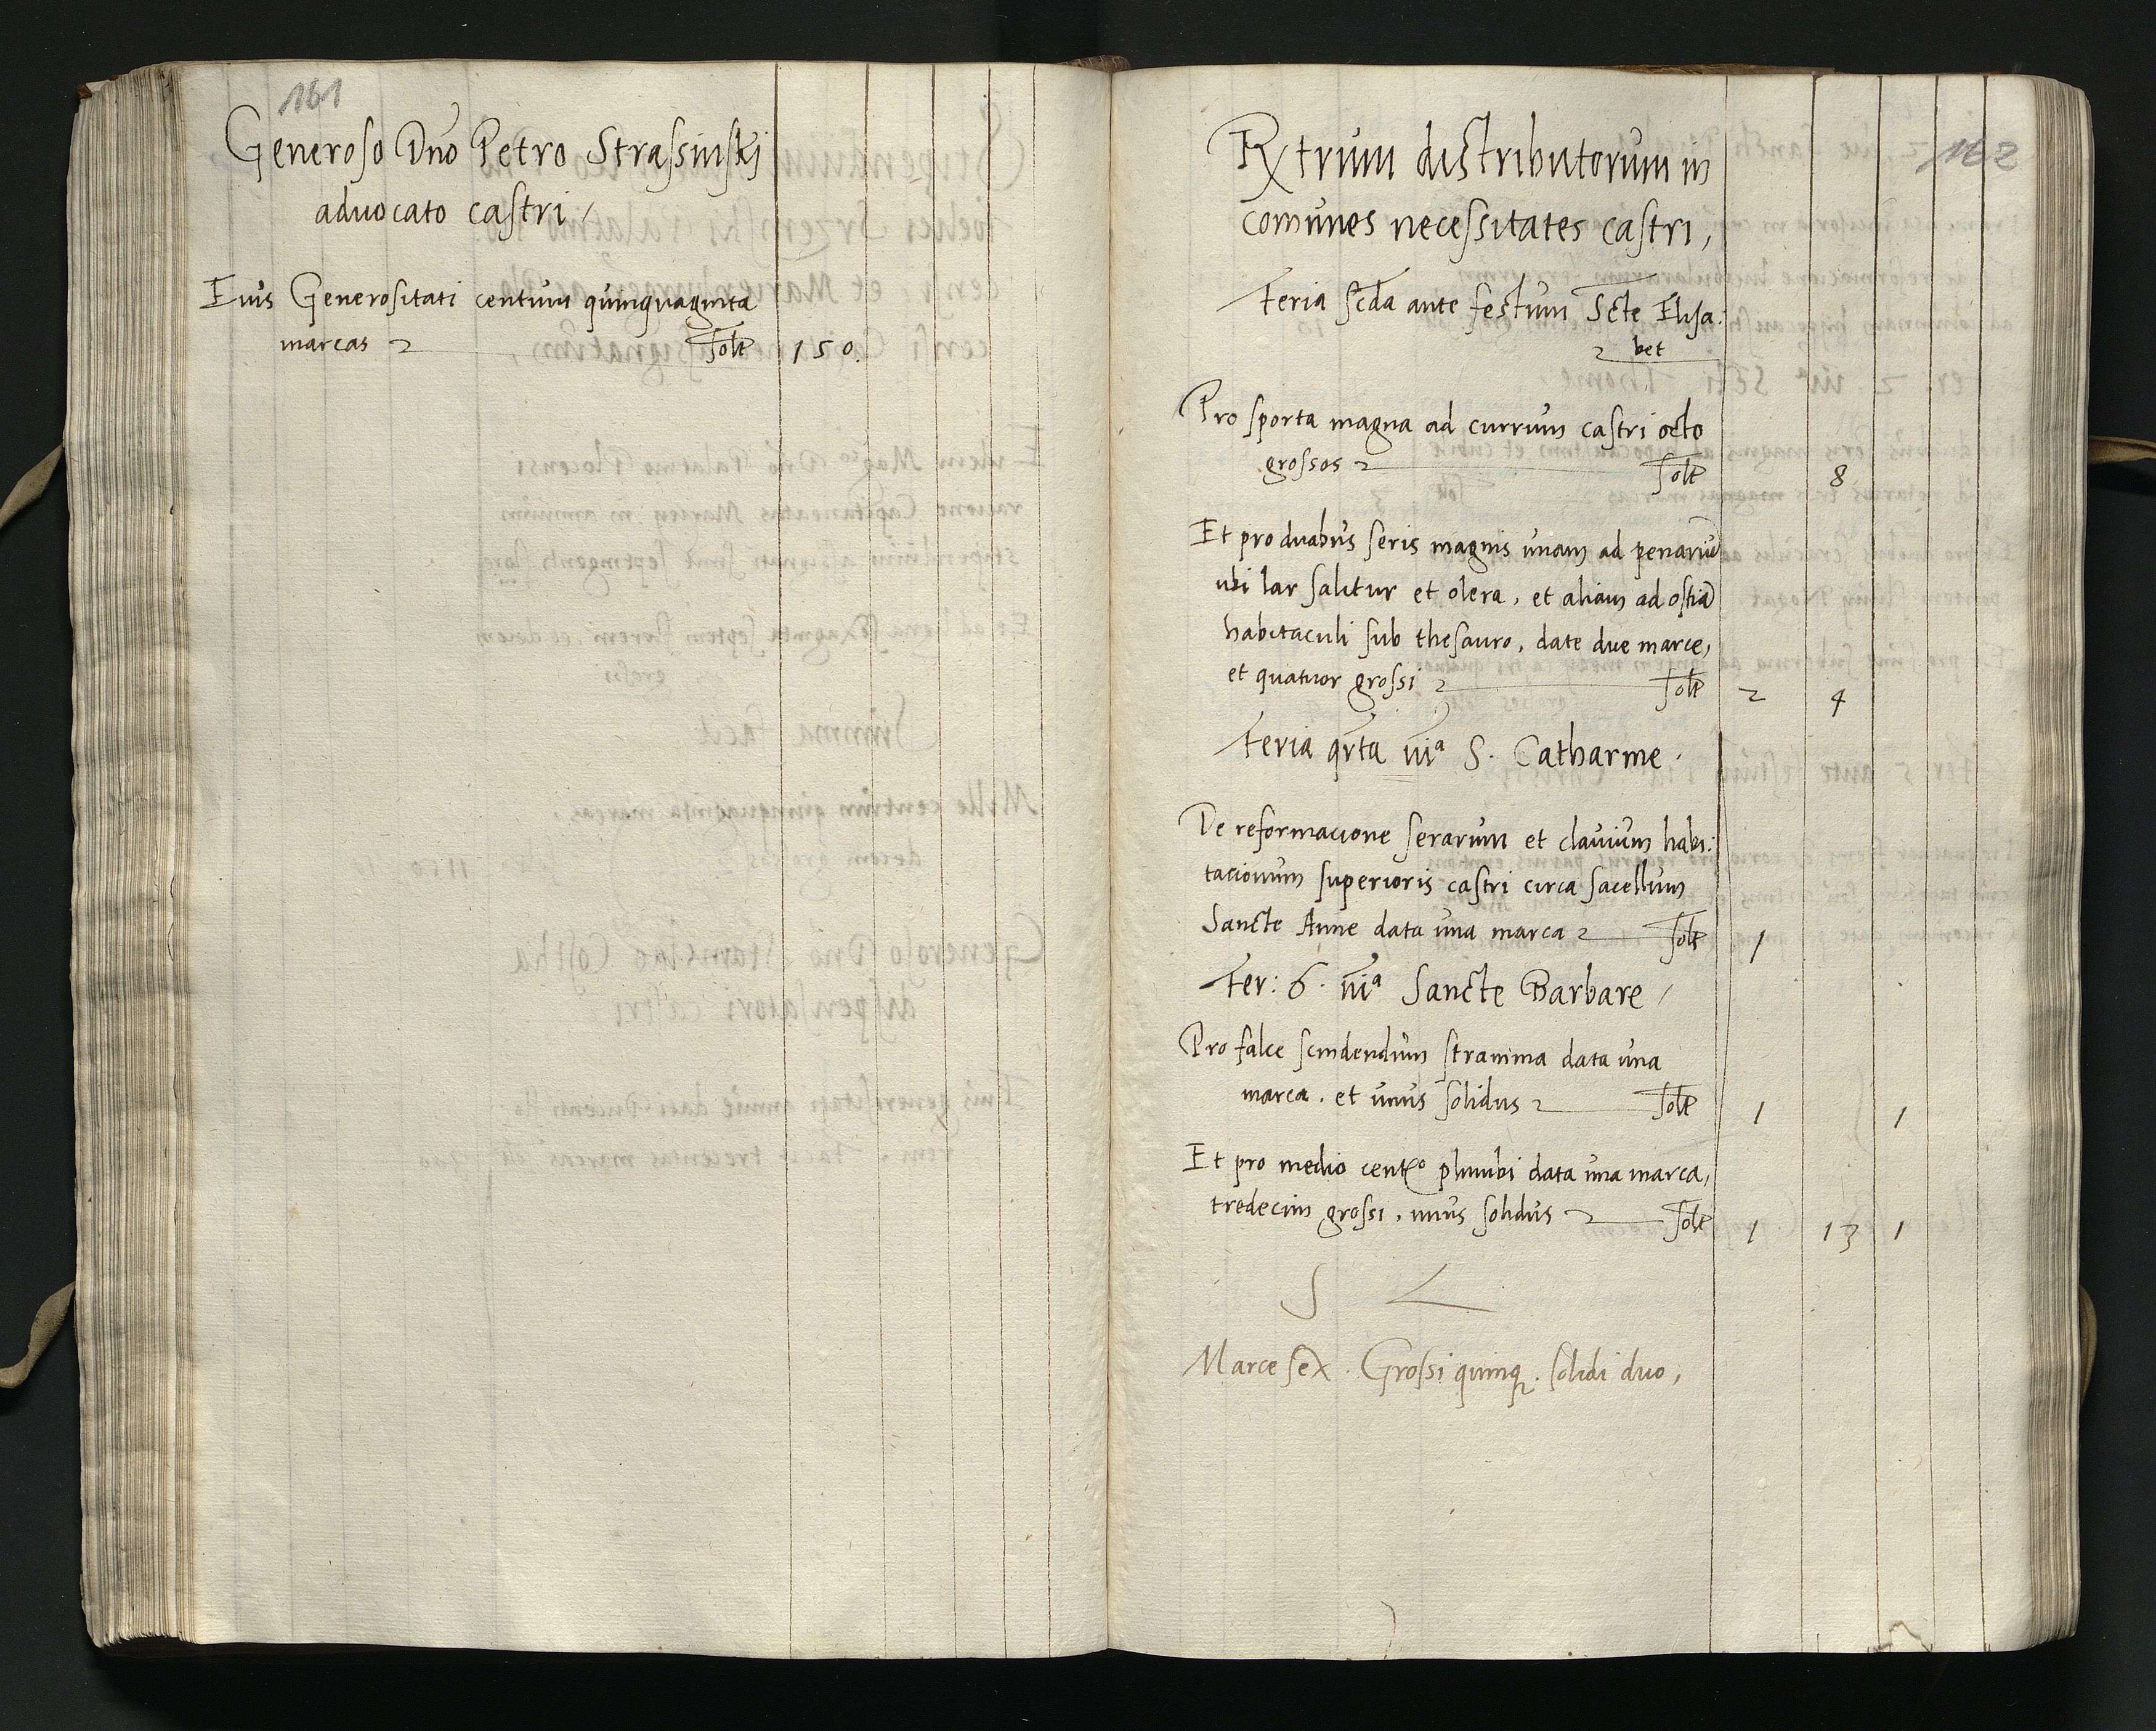 161
Generoso Dno Petro Strassinski
advocato castri /
Eius Generositati centum quinquaginta
marcas solt 150.
162
Rx trium distributorum in
comunes necessitates castri,
Feria scda ante festum Scte Elisa:
bet
Pro sporta magna ad currum castri octo
grossos solt 8
Et pro duabus seris magnis unam ad penariu
ubi lar salitur et olera, et aliam ad ostia
habitaculi sub thesauro, date due marce,
et quatuor grossi solt 2 4
Feria qrta via S. Catharine.
De reformacione serarum et clavium habi:
tacionum superioris castri circa sacellum
Sancte Anne data una marca solt 1
Fer: 6. via Sancte Barbare /
Pro falce scindendum stramina data una
marca. et unus solidus solt 1 1
Et pro medio centro plumbi data una marca,
tredecim grossi, unus solidus solt 1 13 1
S L
Marce sex. Grossi quinq. solidi duo,